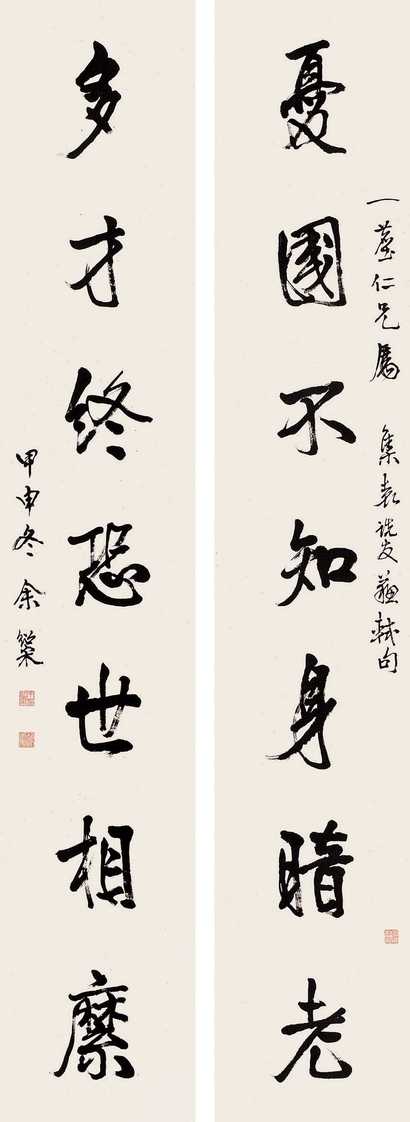 憂國不知身暗老
一廬仁兄屬 集袁說友蘇軾句
多才終恐世相縻
甲申冬 余